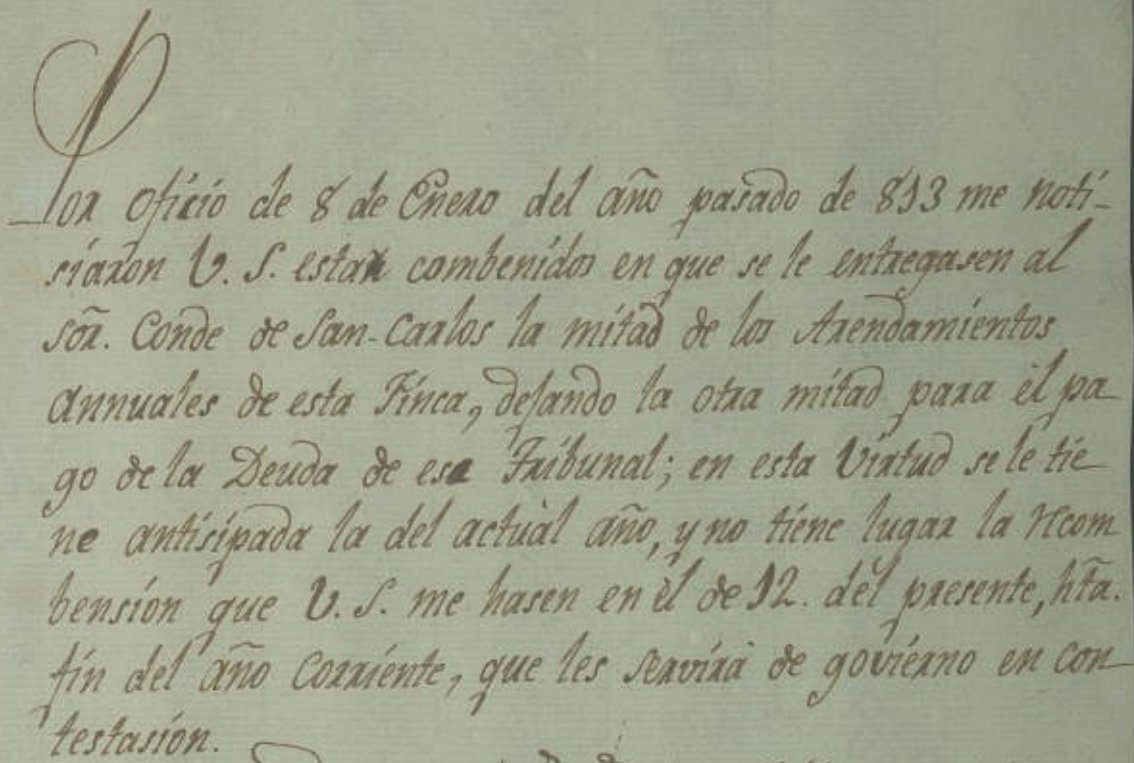 Por oficio de 8 de Enero del año pasado de 813 me noti-
siaron V. S. estar combenidos en que se le entregasen al
sõr. Conde de San-Carlos la mitad de los Arendamientos
Annuales de esta Finca, dejando la otra mitad para èl pa
go de la Deuda de ese Tribunal; en esta Virtud se le tie
ne antisipada la del actuàl año, y no tiene lugar la Recom
bensión que V. S. me hasen en èl de 12. del presente, hta.
fin del año Corriente, que les servirà de govierno en con
testasión.